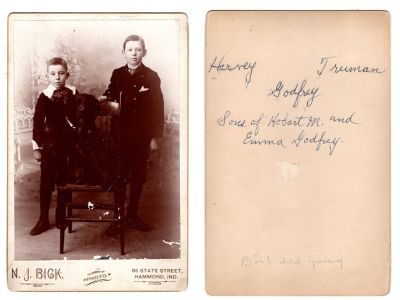 N. J. BICK.
PHOTO.
86 STATE STREET,
HAMMOND, IND.
Harvey Truman
Godfrey
Sons of Hobart M. and
Emma Godfrey.
Both died young